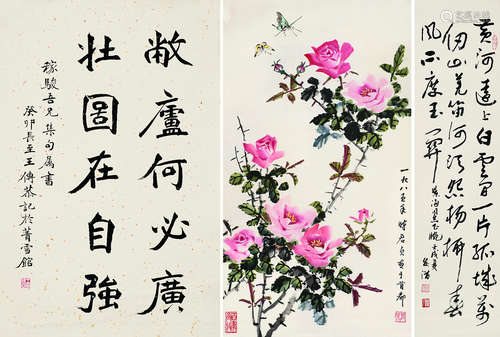 敝廬何必廣
壯圖在自強
稼駿吾兄集句屬書
癸卯長至王傳恭記於菁雪館
一九八五年
君貞画于首都
黄河遠上白雲間一片孤城萬
仞山羌笛何須怨楊柳春
風不度玉